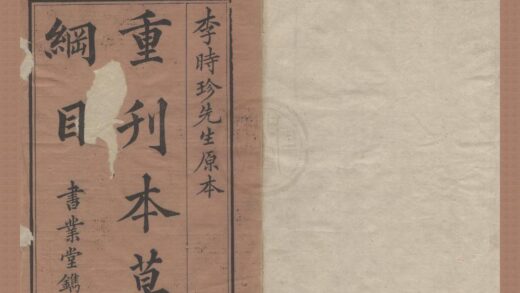 李時珍先生原本
重刊本草
綱目
書業堂鐫